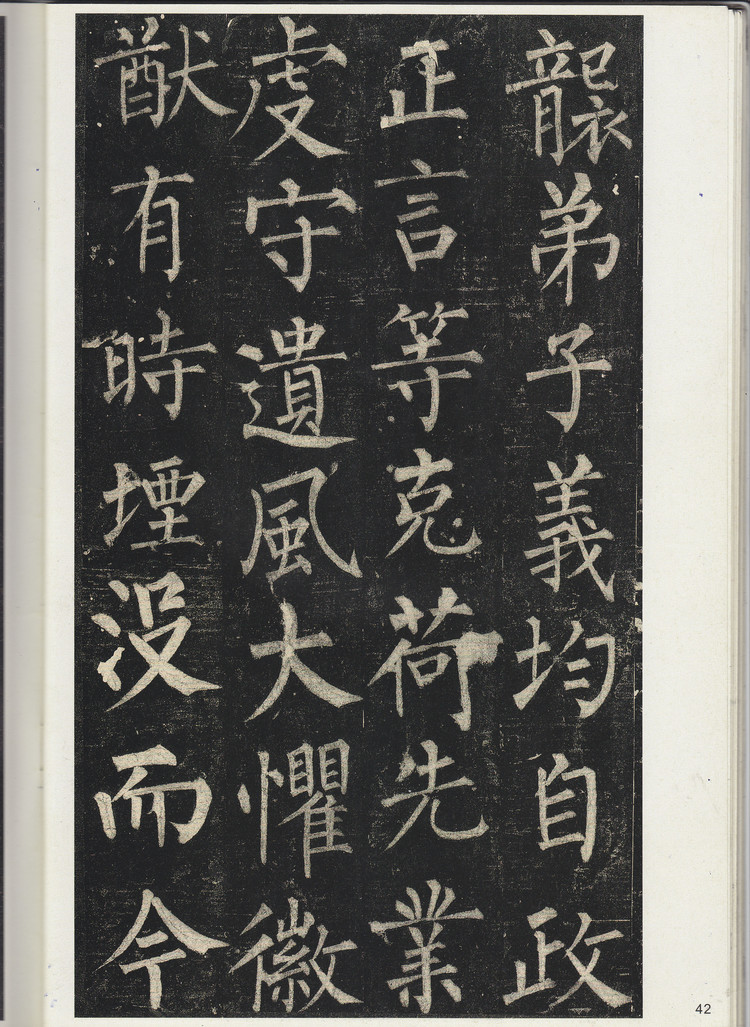 襲弟子義均自政
正言等克荷先業
虔守遺風大懼徽
猷有時堙沒而今
42